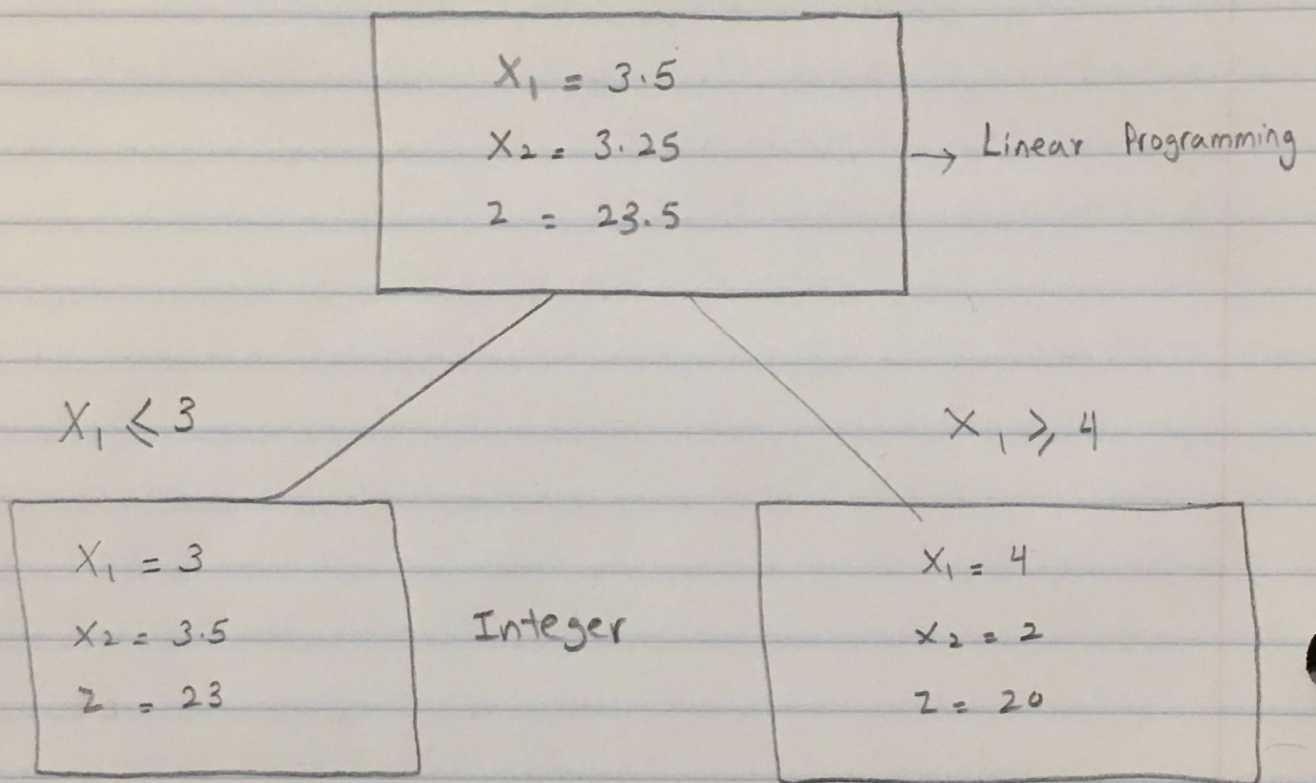 X₁ = 3.5
X₂ = 3.25
Z = 23.5
→ Linear Programming
X₁ ⩽ 3
X₁ ⩾ 4
X₁ = 3
X₂ = 3.5
Z = 23
Integer
X₁ = 4
X₂ = 2
Z = 20